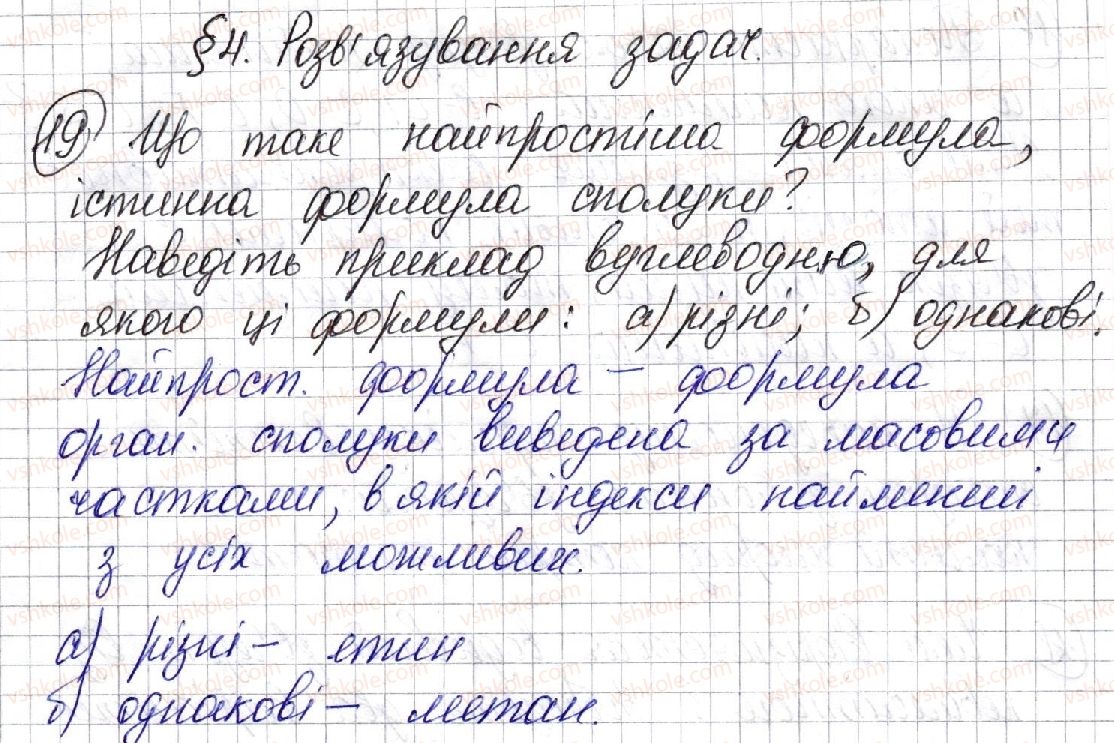 §4. Розв'язування задач.
19 Що таке найпростіша формула,
істинна формула сполуки?
Наведіть приклад вуглеводню, для
якого ці формули: а) різні; б) однакові.
Найпрост. формула – формула
орган. сполуки виведена за масовими
частками, в якій індекси найменші
з усіх можливих.
а) різні – етин
б) однакові – метан.